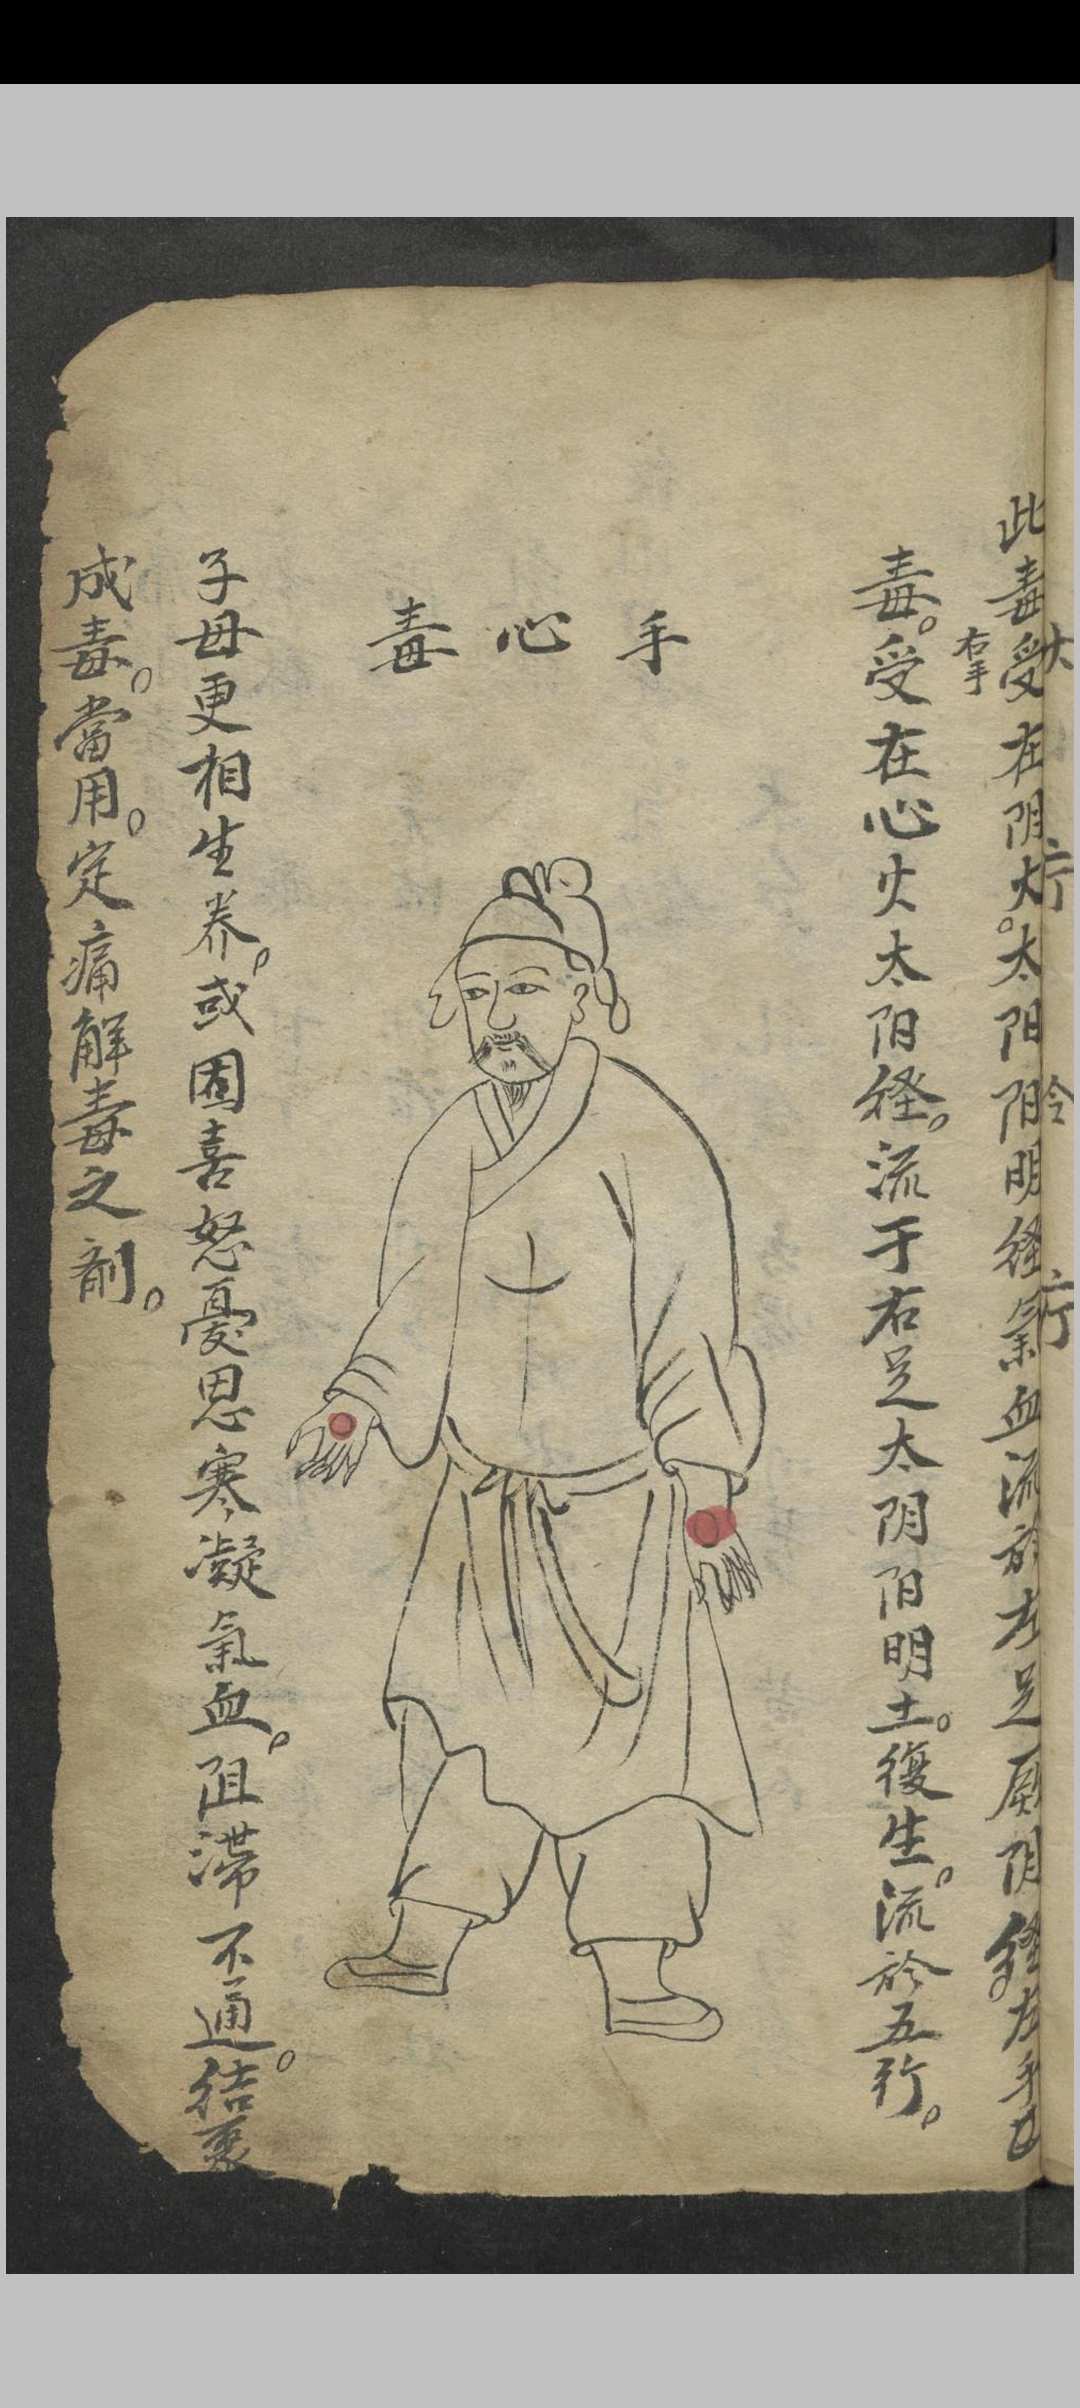 此毒受在阴火。太阳阳明経氣血流於左足厥阴経左手
右手
毒。受在心火太阳経。流于右足太阴阳明土。復生。流於五行。
手心毒
子母更相生养。或因喜怒憂思寒凝氣血。阻滞不通。结裹
成毒。當用。定痛解毒之剤。